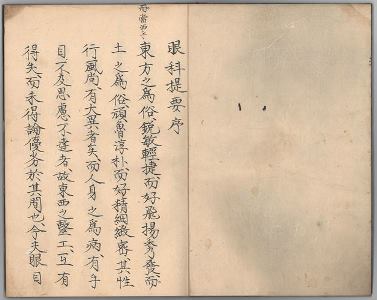 眼科提要序
東方之爲俗、銳敏輕捷、而好飛揚秀發、西
土之爲俗、頑魯淳朴、而好精細緻密、其性
行風尚、有大異者矣、而人身之爲病、有手
目不及思慮不達者、故東西之醫工、互有
得失、而未得論優劣於其間也、今夫眼目